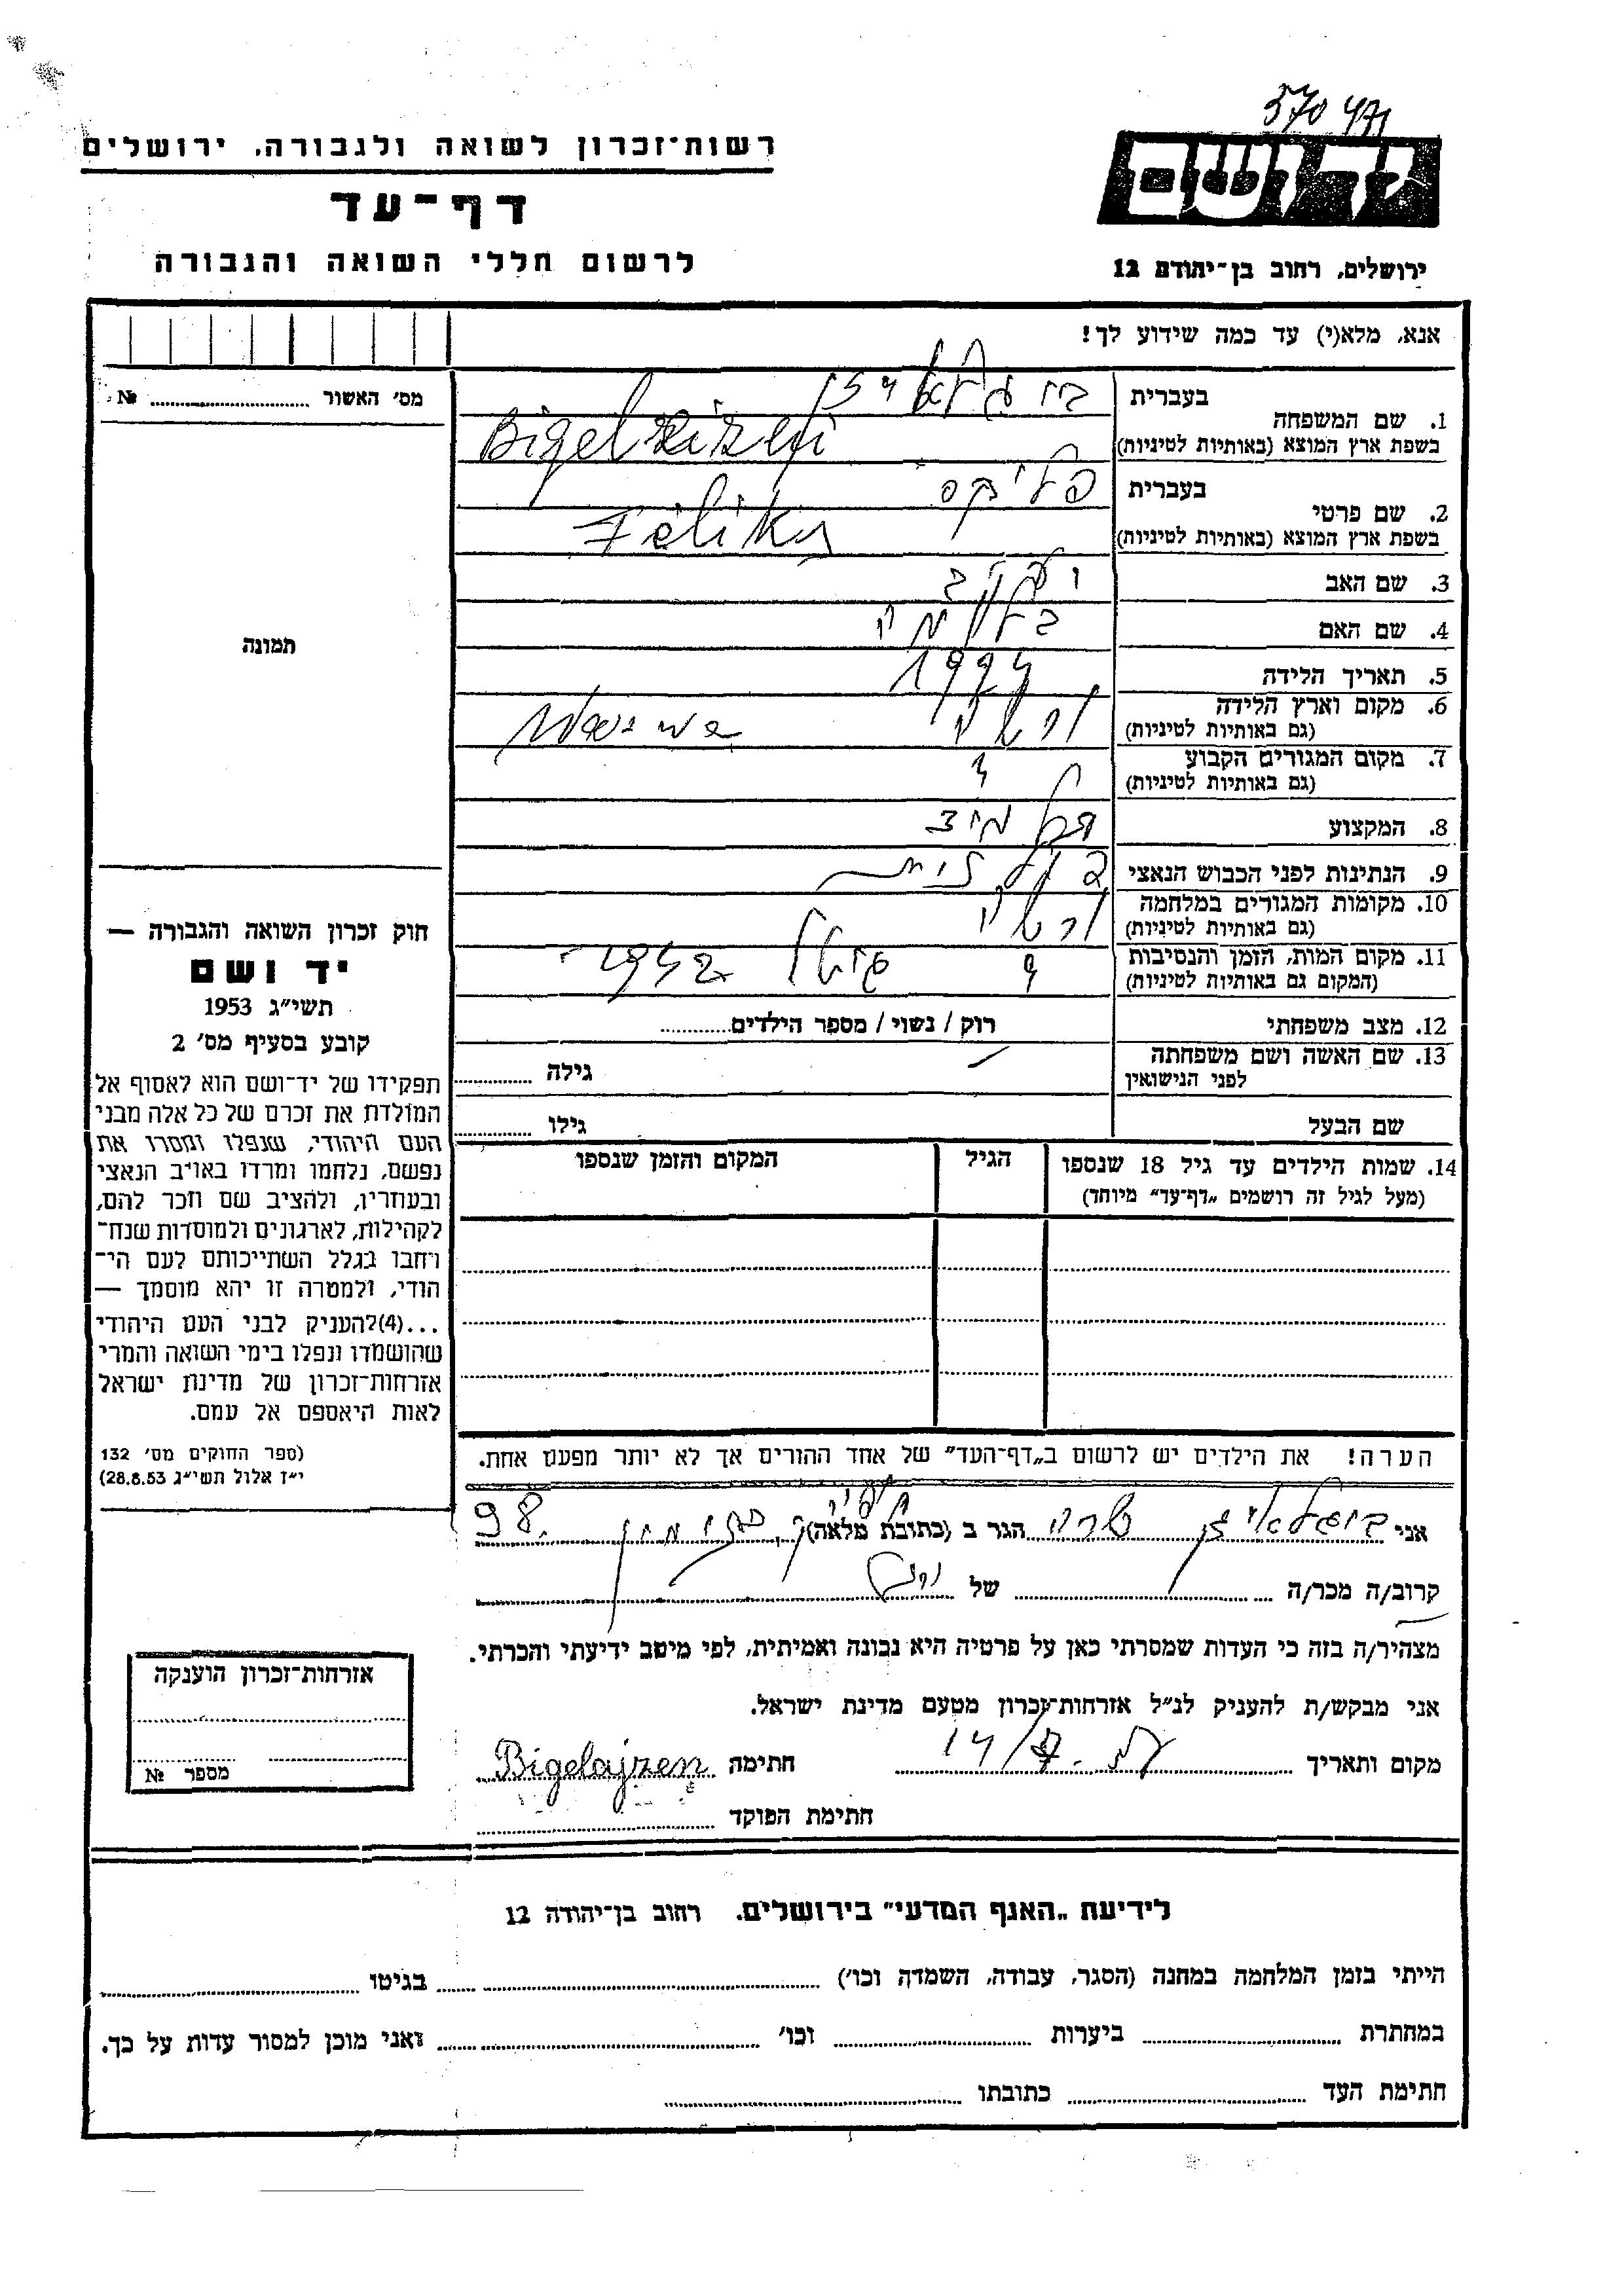 370471
רשות־זכרון לשואה ולגבורה, ירושלים
דף־עד
לרשום חללי השואה והגבורה
יד ושם
ירושלים, רחוב בן־יהודה 12
אנא, מלא(י) עד כמה שידוע לך!
מס׳ האשור № 
תמונה
חוק זכרון השואה והגבורה —
יד ושם
תשי״ג 1953
קובע בסעיף מס׳ 2
תפקידו של יד־ושם הוא לאסוף אל
המולדת את זכרם של כל אלה מבני
העם היהודי, שנפלו ומסרו את
נפשם, נלחמו ומרדו באויב הנאצי
ובעוזריו, ולהציב שם וזכר להם,
לקהילות, לארגונים ולמוסדות שנח־
רחבו בגלל השתייכותם לעם הי־
הודי, ולמטרה זו יהא מוסמך —
...(4)להעניק לבני העם היהודי
שהושמדו ונפלו בימי השואה והמרי
אזרחות־זכרון של מדינת ישראל
לאות היאספם אל עמם.
(ספר החוקים מס׳ 132
י״ז אלול תשי״ג 28.8.53)
1. שם המשפחה
בעברית ביגלאיזן
בשפת ארץ המוצא (באותיות לטיניות)
2. שם פרטי
בעברית פליקס
בשפת ארץ המוצא (באותיות לטיניות) Feliks
3. שם האב יעקב
4. שם האם
5. תאריך הלידה 1924
6. מקום וארץ הלידה
(גם באותיות לטיניות) ורשה
7. מקום המגורים הקבוע
(גם באותיות לטיניות)
8. המקצוע תלמיד
9. הנתינות לפני הכבוש הנאצי פולנית
10. מקומות המגורים במלחמה
(גם באותיות לטיניות) ורשה
11. מקום המות, הזמן והנסיבות
(המקום גם באותיות לטיניות)
12. מצב משפחתי רוק / נשוי / מספר הילדים
13. שם האשה ושם משפחתה
לפני הנישואין גילה
שם הבעל גילו
14. שמות הילדים עד גיל 18 שנספו הגיל המקום והזמן שנספו
(מעל לגיל זה רושמים „דף־עד״ מיוחד)
הערה! את הילדים יש לרשום ב„דף־העד״ של אחד ההורים אך לא יותר מפעם אחת.
אני ביגלאיזן שרה הגר ב (כתובת מלאה) 98
קרוב/ה מכר/ה של
מצהיר/ה בזה כי העדות שמסרתי כאן על פרטיה היא נכונה ואמיתית, לפי מיטב ידיעתי והכרתי.
אני מבקש/ת להעניק לנ״ל אזרחות־זכרון מטעם מדינת ישראל.
מקום ותאריך חתימה Bigelajzen
חתימת הפוקד
אזרחות־זכרון הוענקה
מספר №
לידיעת „האגף המדעי״ בירושלים. רחוב בן־יהודה 12
הייתי בזמן המלחמה במחנה (הסגר, עבודה, השמדה וכו׳) בגיטו
במחתרת ביערות וכו׳ ואני מוכן למסור עדות על כך.
חתימת העד כתובתו